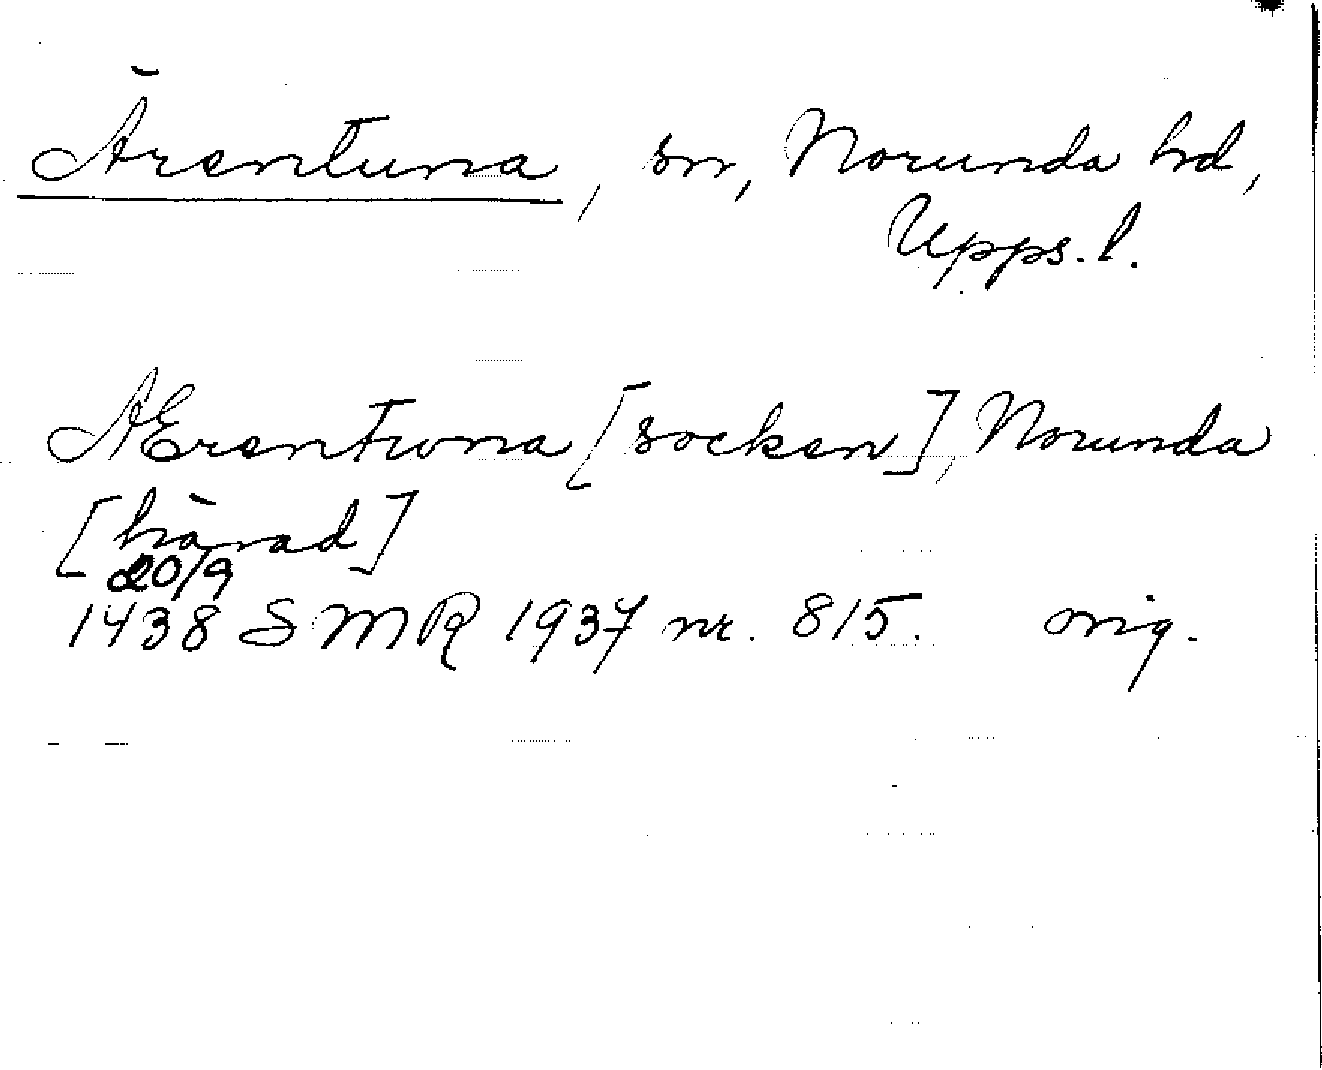 Ärentuna, sn, Norunda hd,
Upps. l.
AErentwna [socken], Norunda
[härad]
20/9
1438 SMR 1937 nr. 815. orig.